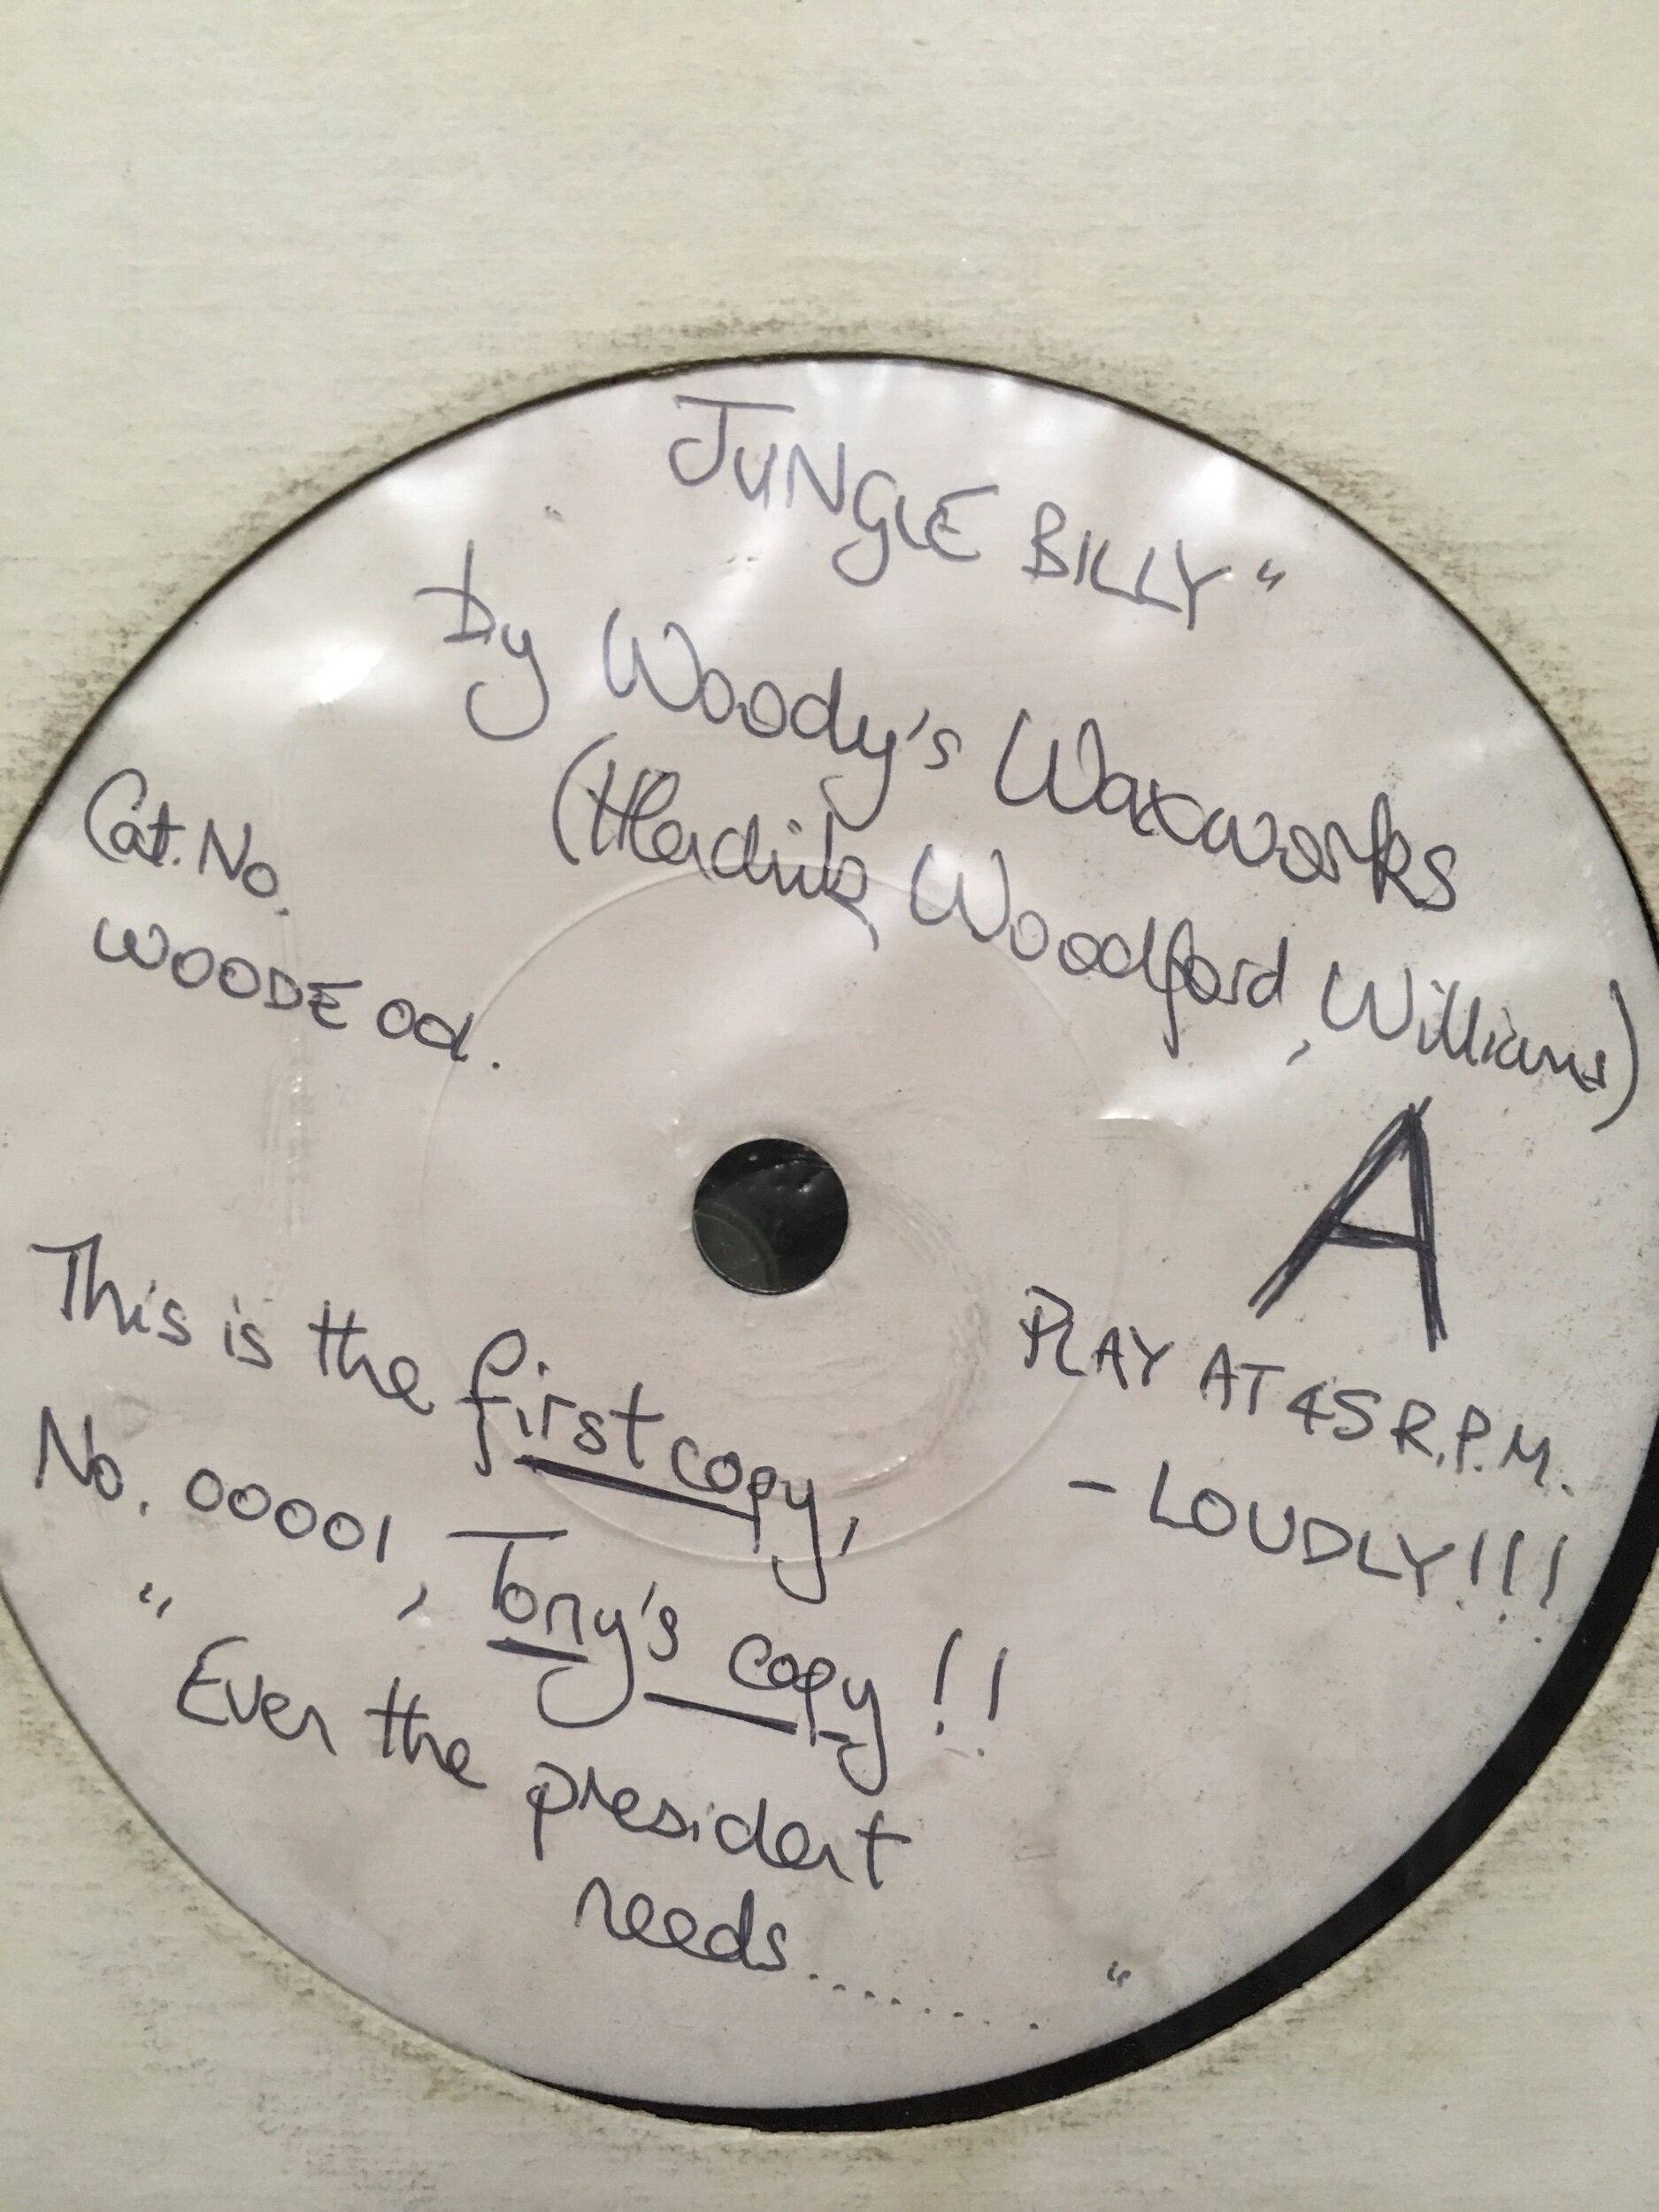 JUNGLE BILLY"
by Woody's Waxworks
(Hladik, Woodford, Williams)
Cat. No.
WOODE od.
A
PLAY AT 45 R.P.M.
- LOUDLY!!!
This is the first copy,
No. 00001, Tony's copy!!
"Even the president
needs........."